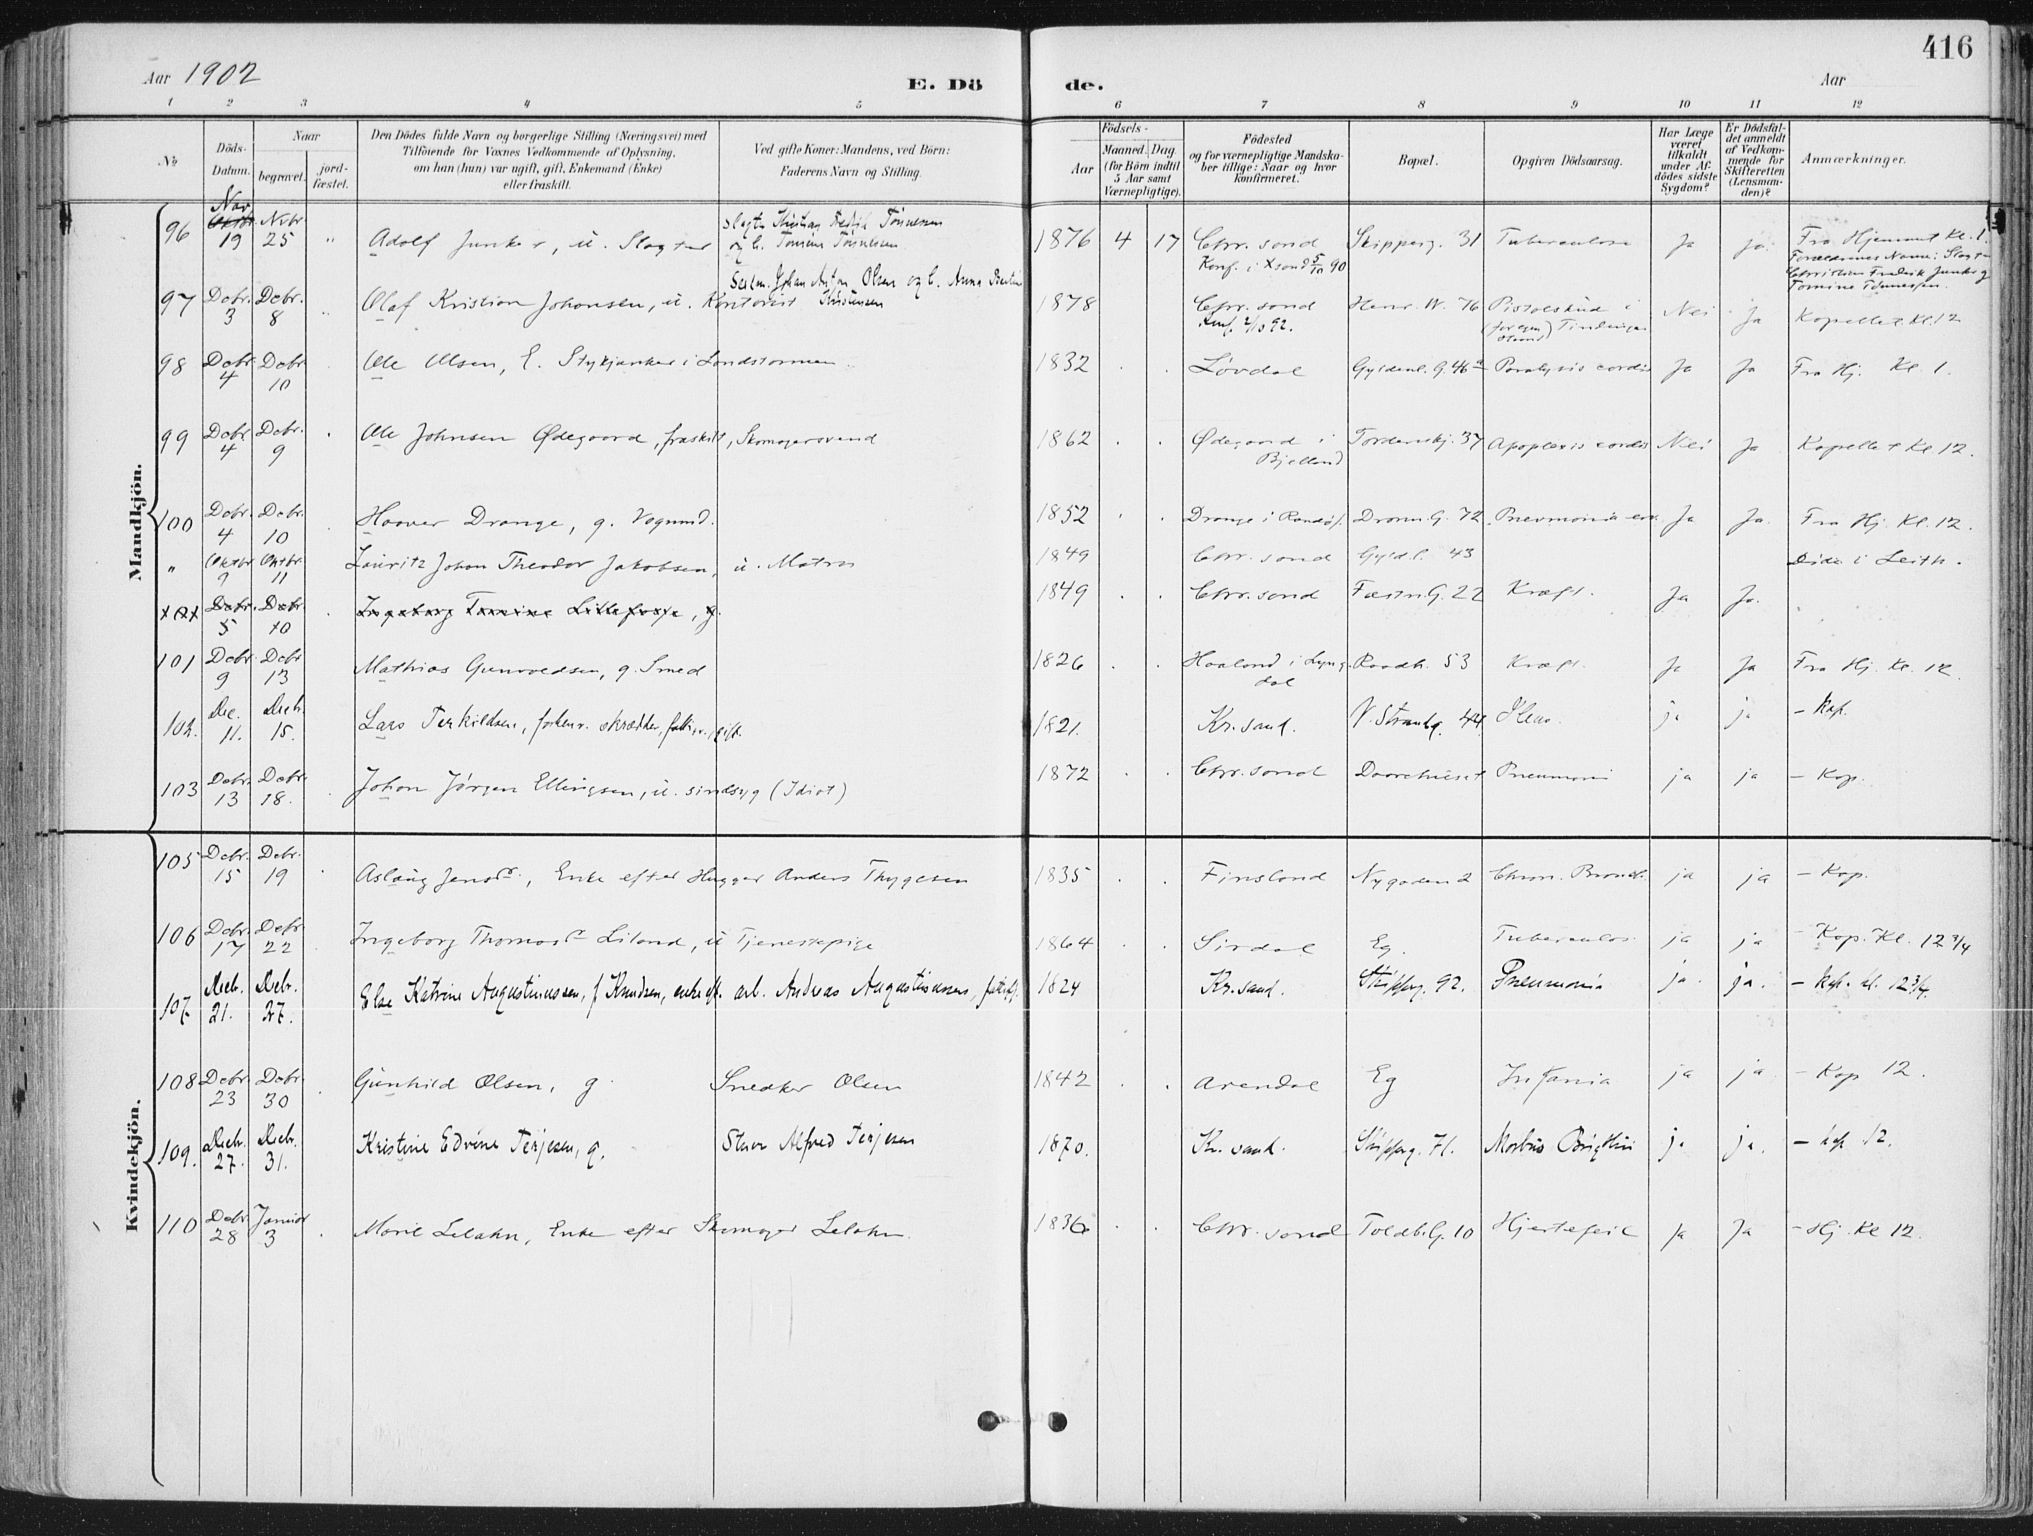 416
Aar 1902
E. Dö
de.
Aar
1 2 3 4 5 6 7 8 9 10 11 12
No
Döds-
Datum.
Naar
begravet.
jord-
fæstet.
Den Dödes fulde Navn og borgerlige Stilling (Næringsvei) med
Tilföiende for Voxnes Vedkommende af Oplysning,
om han (hun) var ugift, gift, Enkemand (Enke)
eller fraskilt.
Ved gifte Koner: Mandens, ved Börn:
Faderens Navn og Stilling.
Födsels-
Aar
Maaned. Dag.
(for Börn indtil
5 Aar samt
Værnepligtige).
Födested
og for værnepligtige Mandska-
ber tillige: Naar og hvor
konfirmeret.
Bopæl.
Opgiven Dödsaarsag.
Har Læge
været
tilkaldt
under Af-
dödes sidste
Sygdom?
Er Dödsfal-
det anmeldt
af Vedkom-
mende for
Skifteretten
(Lensman-
den)?
Anmærkninger.
Mandkjön.
96 Nov. 19 Nvbr. 25 " Adolf Junker, u. Slagter 1876 4 17 Chr.sand Skipperg. 31 Tuberculose Ja Ja Fra Hjemmet Kl. 1.
Konf. i Xsand 5/10 90
97 Debr. 3 Debr. 8 " Olaf Kristian Johansen, u. Kontorist 1878 Chr.sand Henr. W. 76 Pistolskud i Nei Ja Kapellet Kl. 12
Konf. 2/10 92.
98 Debr. 4 Debr. 10 Ole Olsen, E. Stykjunker i Landstormen 1832 . . Løvdal Gyldenl. G. 46a Paralysis cordis Ja Ja Fra Hj. Kl. 1.
99 Debr. 4 Debr. 9 Ole Johnsen Ødegaard, fraskilt, Skomagersvend 1862 . . Ødegaard i Bjelland Tordenskj. 37 Apoplexis cordis Nei Ja Kapellet Kl. 12.
100 Debr. 4 Debr. 10 Haaver Drange, g. Vognmd. 1852 . . Drange i Dronn. G. 72 Pneumonia Ja Ja Fra Hj. Kl. 12.
" Oktbr. 9 Oktbr. 11 Lauritz Johan Theodor Jakobsen, u. Matros 1849 Chr.sand Gyldl. 43 Døde i Leith.
101 Debr. 5 Debr. 10 Ingeborg Tomine Lillefosse, g. 1849 . . Chr.sand Fæstn. G. 22 Kræft. Ja Ja.
101 Debr. 9 Debr. 13 Mathias Gunvoldsen, g. Smed 1826 . . Haaland i Lyngdal Raadh. 53 Kræft. Ja Ja Fra Hj. Kl. 12.
102. Dec. 11. Decb. 15. Lars Terkildsen, forhenv. skrædder, gift. 1821. Kr.sand. V. Strandg. 44 Ileus. ja ja - kap.
103 Debr. 13 Debr. 18. Johan Jørgen Ellingsen, u. sindssyg (Idiot) 1872 . . Chr.sand Daarehuset Pneumoni ja ja - Kap.
Kvindekjön.
105 Debr. 15 Debr. 19 Aslaug Jensdr., Enke efter Hugger Anders Thygesen 1835 . . Finsland Nygaden 2 Chron. Bronch. ja ja - Kap.
106 Debr. 17 Debr. 22 Ingeborg Thomasdr Liland, u Tjenestepige 1864 . . Sirdal Eg. Tuberculos. ja ja - Kap. Kl. 12 3/4
107. Decb. 21. Decb. 27. Else Katrine Augustinussen, f. Knudsen, enke eft. arb. Andreas Augustinussen 1824 Kr.sand. Skipperg. 92. Pneumonia ja. ja. - kap. kl. 12 3/4.
108 Debr. 23 Debr. 30 Gunhild Olsen, g. Snedker Olsen 1842 . . Arendal Eg Insania ja ja - Kap 12.
109. Decb. 27. Decb. 31. Kristine Edvine Terjesen, g. Stuer Alfred Terjesen 1870. Kr.sand. Skipperg. 71. Morbus Brigthii ja ja. - kap 12.
110 Debr. 28 Januar 3 Marie Lelahn, Enke efter Skomager Lelahn. 1836 . . Chr.sand Toldb. G. 10 Hjertefeil Ja Ja - Hj. Kl 12.